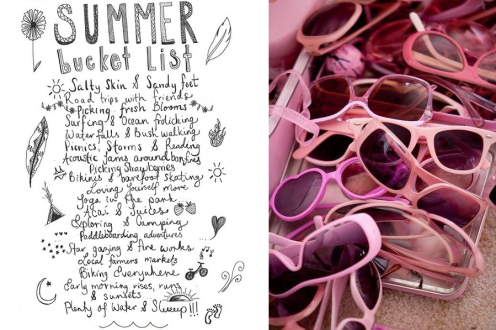 SUMMER
bucket List
Salty Skin & Sandy feet
Road trips with friends
Picking fresh Blooms
Surfing & Ocean frolicking
Waterfalls & bush walking
Picnics, Storms & Reading
Acoustic Jams around bonfires
Picking Strawberries
Bikinis & barefoot skating
Loving yourself more
Yoga in the park
Acai & Juices
Exploring & Camping
Paddleboarding adventures
Star gazing & fire works
Local farmers markets
Biking Everywhere
Early morning rises, runs
& sunsets
Plenty of Water & Sleeeep!!!